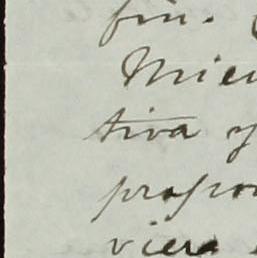 fin.
Mien
tiva y
propon
viera